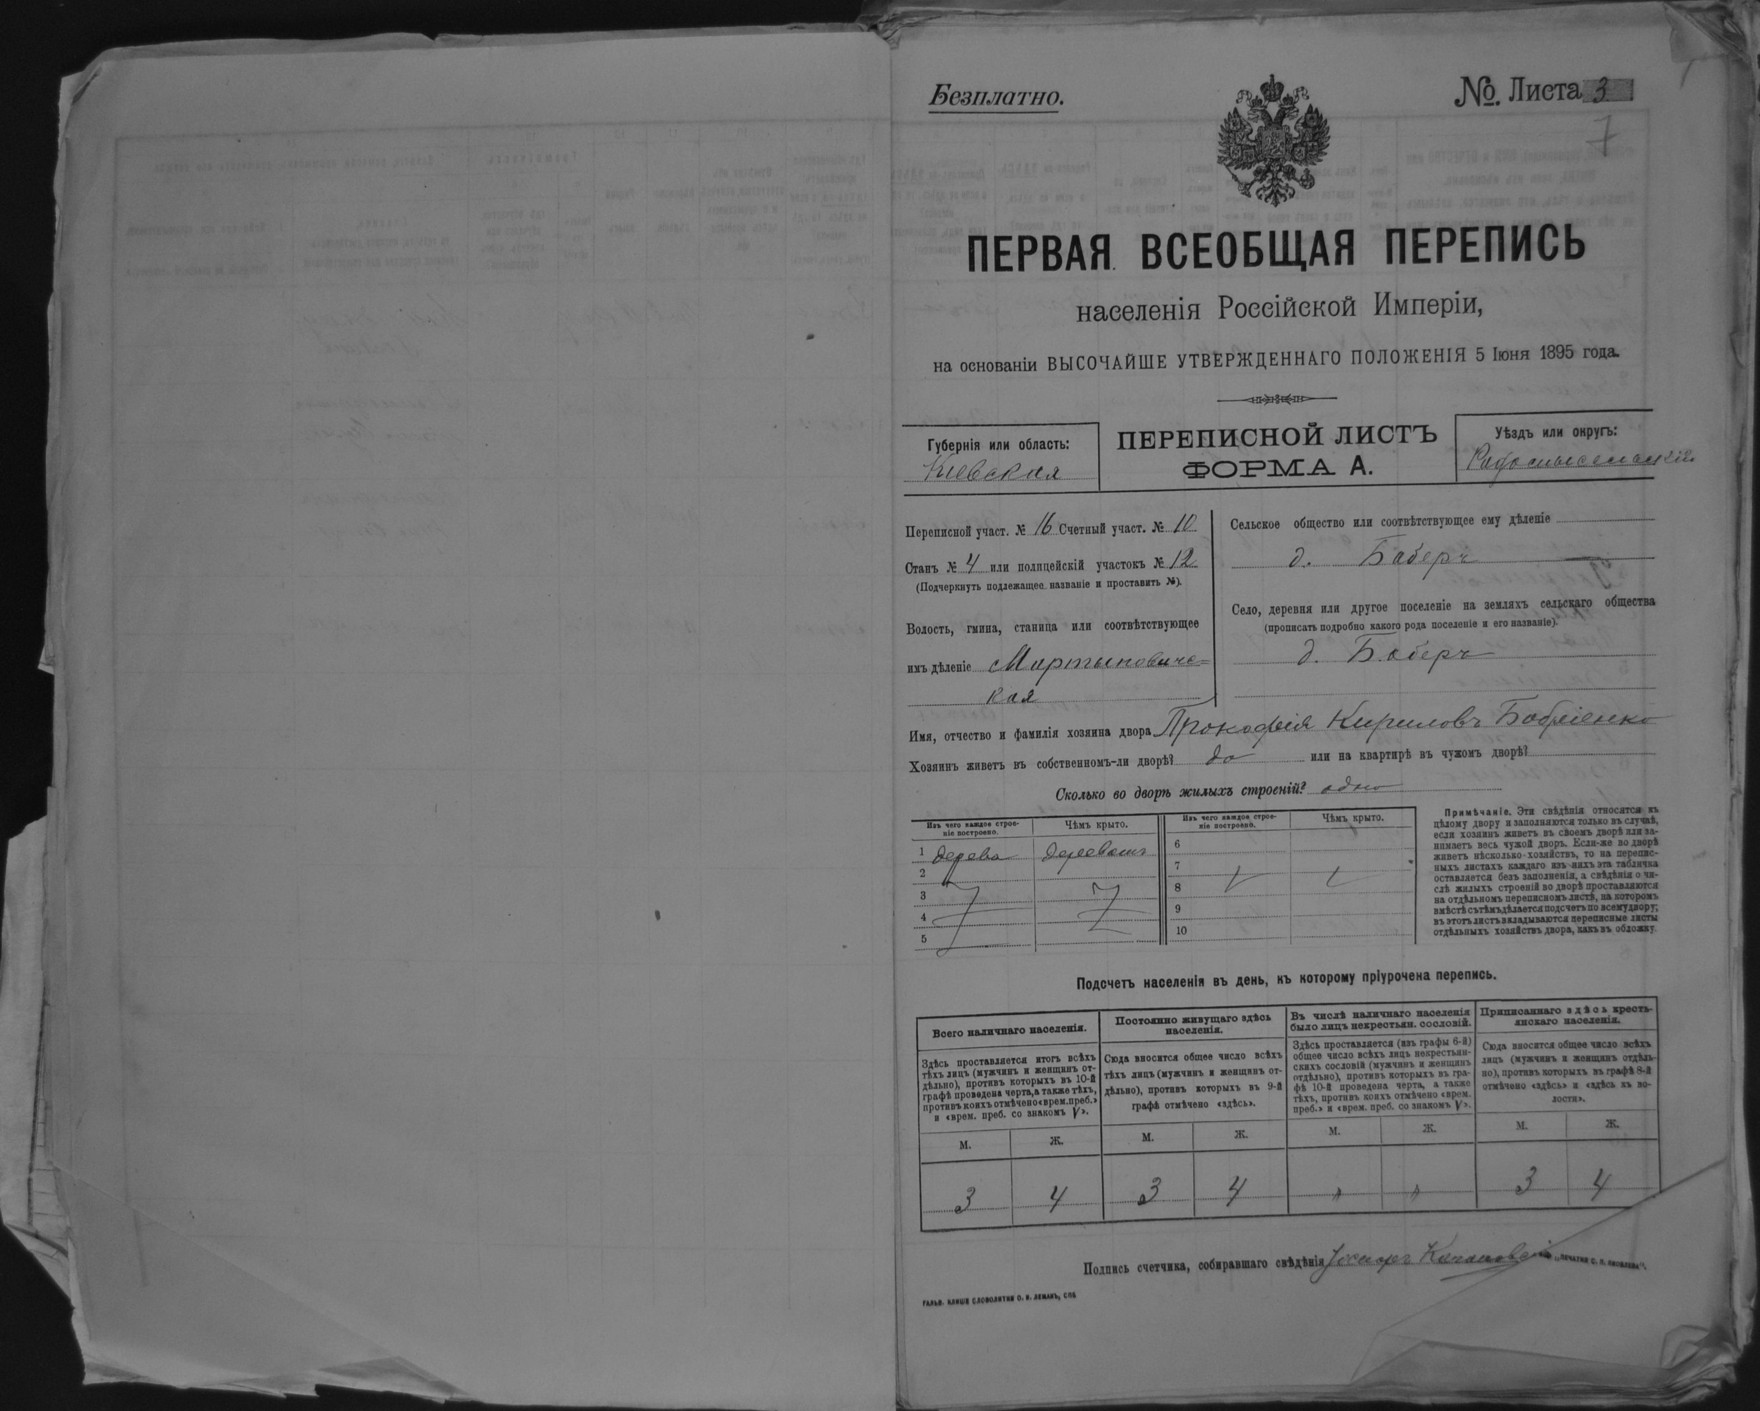 Безплатно.
№. Листа 3
7
ПЕРВАЯ ВСЕОБЩАЯ ПЕРЕПИСЬ
населенія Россійской Имперіи,
на основаніи ВЫСОЧАЙШЕ УТВЕРЖДЕННАГО ПОЛОЖЕНІЯ 5 Іюня 1895 года.
Губернія или область:
Кіевская
ПЕРЕПИСНОЙ ЛИСТЪ
ФОРМА А.
Уѣздъ или округъ:
Радомысльскій
Переписной участ. № 16 Счетный участ. № 10
Станъ № 4 или полицейскій участокъ № 12
(Подчеркнуть подлежащее названіе и проставить №).
Волость, гмина, станица или соотвѣтствующее
имъ дѣленіе Мартыновичс=
кая
Сельское общество или соотвѣтствующее ему дѣленіе
д. Баберъ
Село, деревня или другое поселеніе на земляхъ сельскаго общества
(прописать подробно какого рода поселеніе и его названіе).
д. Баберъ
Имя, отчество и фамилія хозяина двора Прокофій Кириловъ Бобріенко
Хозяинъ живетъ въ собственномъ-ли дворѣ? да или на квартирѣ въ чужомъ дворѣ?
Сколько во дворѣ жилыхъ строеній? одно
Изъ чего каждое строе-
ніе построено.
Чѣмъ крыто.
Изъ чего каждое строе-
ніе построено.
Чѣмъ крыто.
1 дерева деревомъ
2
3
4
5
6
7
8
9
10
Примѣчаніе. Эти свѣдѣнія относятся къ
цѣлому двору и заполняются только въ случаѣ,
если хозяинъ живетъ въ своемъ дворѣ или за-
нимаетъ весь чужой дворъ. Если-же во дворѣ
живетъ нѣсколько хозяйствъ, то на перепис-
ныхъ листахъ каждаго изъ нихъ эта табличка
оставляется безъ заполненія, а свѣдѣнія о чи-
слѣ жилыхъ строеній во дворѣ проставляются
на отдѣльномъ переписномъ листѣ, на которомъ
вмѣстѣ съ тѣмъ дѣлается подсчетъ по всему двору;
въ этотъ листъ вкладываются переписные листы
отдѣльныхъ хозяйствъ двора, какъ въ обложку.
Подсчетъ населенія въ день, къ которому пріурочена перепись.
Всего наличнаго населенія.
Здѣсь проставляется итогъ всѣхъ
тѣхъ лицъ (мужчинъ и женщинъ от-
дѣльно), противъ которыхъ въ 10-й
графѣ проведена черта, а также тѣхъ,
противъ коихъ отмѣчено «врем. преб.»
и «врем. преб. со знакомъ V».
Постоянно живущаго здѣсь
населенія.
Сюда вносится общее число всѣхъ
тѣхъ лицъ (мужчинъ и женщинъ от-
дѣльно), противъ которыхъ въ 9-й
графѣ отмѣчено «здѣсь».
Въ числѣ наличнаго населенія
было лицъ некрестьян. сословій.
Здѣсь проставляется (изъ графы 6-й)
общее число всѣхъ лицъ некрестьян-
скихъ сословій (мужчинъ и женщинъ
отдѣльно), противъ которыхъ въ гра-
фѣ 10-й проведена черта, а также
тѣхъ, противъ коихъ отмѣчено «врем.
преб.» и «врем. преб. со знакомъ V».
Приписаннаго здѣсь кресть-
янскаго населенія.
Сюда вносится общее число всѣхъ
лицъ (мужчинъ и женщинъ отдѣль-
но), противъ которыхъ въ графѣ 8-й
отмѣчено «здѣсь» и «здѣсь къ во-
лости».
М. Ж. М. Ж. М. Ж. М. Ж.
3 4 3 4 » » 3 4
Подпись счетчика, собиравшаго свѣдѣнія Іосифъ Качановскій
ГАЛЬВ. КЛИШЕ СЛОВОЛИТНИ О. И. ЛЕМАНЪ, СПБ